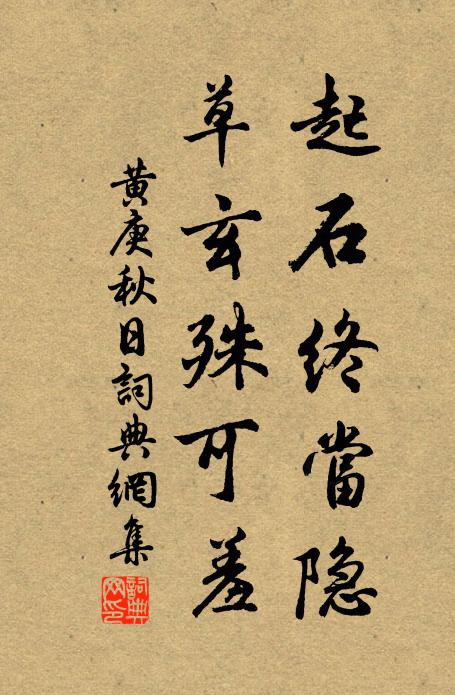 起石终當隐
草玄殊可羞
黄庚秋日詞典網集
詞典網印